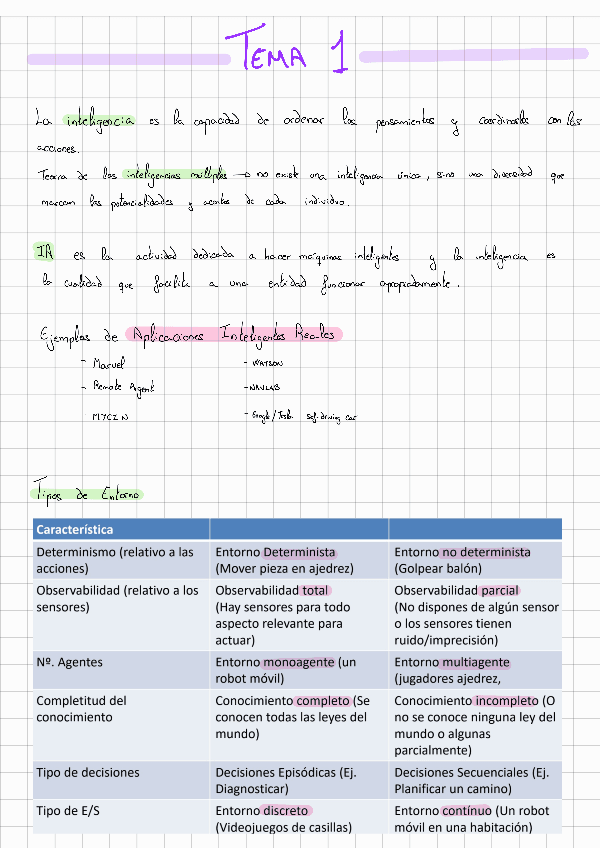 TEMA 1
La inteligencia es la capacidad de ordenar los pensamientos y coordinarlos con las
acciones.
Teoría de las inteligencias múltiples → no existe una inteligencia única, sino una diversidad que
marcan las potencialidades y acentos de cada individuo.
IA es la actividad dedicada a hacer máquinas inteligentes y la inteligencia es
la cualidad que facilita a una entidad funcionar apropiadamente.
Ejemplos de Aplicaciones Inteligentes Reales
- Marvel - WATSON
- Remote Agent - NAVLAB
MYCIN - Google/Tesla Self-driving car
Tipos de Entorno
Característica
Determinismo (relativo a las Entorno Determinista Entorno no determinista
acciones) (Mover pieza en ajedrez) (Golpear balón)
Observabilidad (relativo a los Observabilidad total Observabilidad parcial
sensores) (Hay sensores para todo (No dispones de algún sensor
aspecto relevante para o los sensores tienen
actuar) ruido/imprecisión)
Nº. Agentes Entorno monoagente (un Entorno multiagente
robot móvil) (jugadores ajedrez,
Completitud del Conocimiento completo (Se Conocimiento incompleto (O
conocimiento conocen todas las leyes del no se conoce ninguna ley del
mundo) mundo o algunas
parcialmente)
Tipo de decisiones Decisiones Episódicas (Ej. Decisiones Secuenciales (Ej.
Diagnosticar) Planificar un camino)
Tipo de E/S Entorno discreto Entorno contínuo (Un robot
(Videojuegos de casillas) móvil en una habitación)